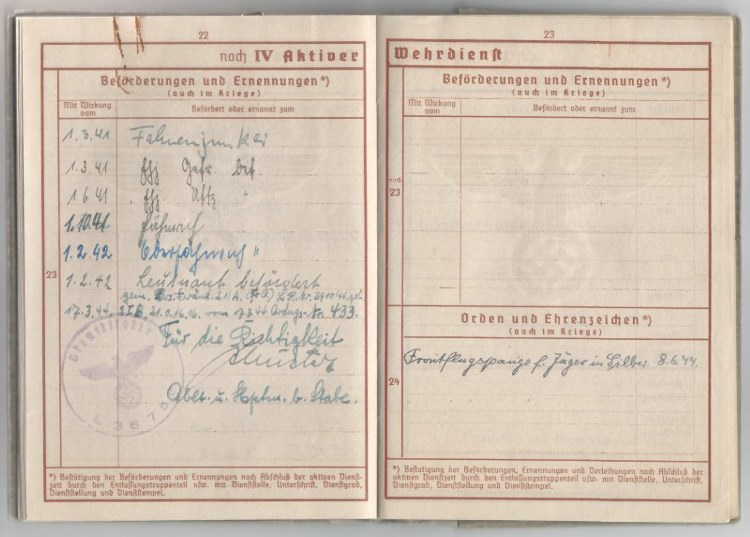 22
noch IV Aktiver
Beförderungen und Ernennungen*)
(auch im Kriege)
Mit Wirkung vom
Befördert oder ernannt zum
1.3.41 Fahnenjunker
1.3.41 Fhj Gefr. Bef.
1.6.41 Fhj Uffz "
1.10.41 Fähnrich
1.2.42 Oberfähnrich "
23
1.2.42 Leutnant befördert
17.3.44
Nr. 433.
Für die Richtigkeit
Oblt. u. Hptm. b. Stabe.
*) Bestätigung der Beförderungen und Ernennungen nach Abschluß der aktiven Dienst-
zeit durch den Entlassungstruppenteil usw. mit Dienststelle, Unterschrift, Dienstgrad,
Dienststellung und Dienststempel.
23
Wehrdienst
Beförderungen und Ernennungen*)
(auch im Kriege)
Mit Wirkung vom
Befördert oder ernannt zum
noch
23
Orden und Ehrenzeichen*)
(auch im Kriege)
Frontflugspange f. Jäger in Silber 8.6.44.
24
*) Bestätigung der Beförderungen, Ernennungen und Verleihungen nach Abschluß der
aktiven Dienstzeit durch den Entlassungstruppenteil usw. mit Dienststelle, Unterschrift,
Dienstgrad, Dienststellung und Dienststempel.